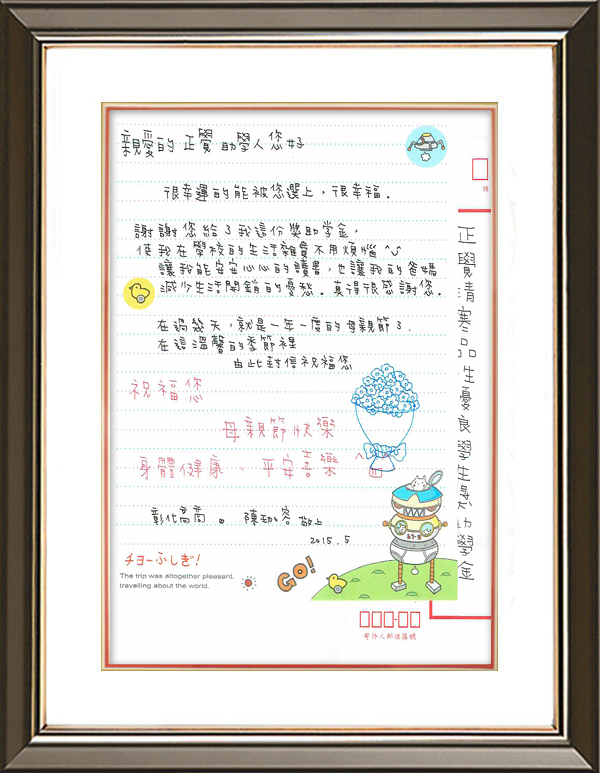 親愛的 正覺 助學人您好
很幸運的能被您選上,很幸福.
謝謝您給了我這份獎助学金,
使我在學校的生活雜費不用煩惱^^
讓我能安安心心的讀書,也讓我的爸媽
減少生活開銷的憂愁.真得很感謝您.
在過幾天,就是一年一度的母親節了.
在這溫馨的季節裡
由此封信祝福您
祝福您
母親節快樂
身體健康、平安喜樂
彰化高商 陳 容 敬上
2015.5
チョーふしぎ!
The trip was altogether pleasant.
travelling about the world.
GO!
正覺清寒品性優良學生獎助學金
寄件人郵遞區號